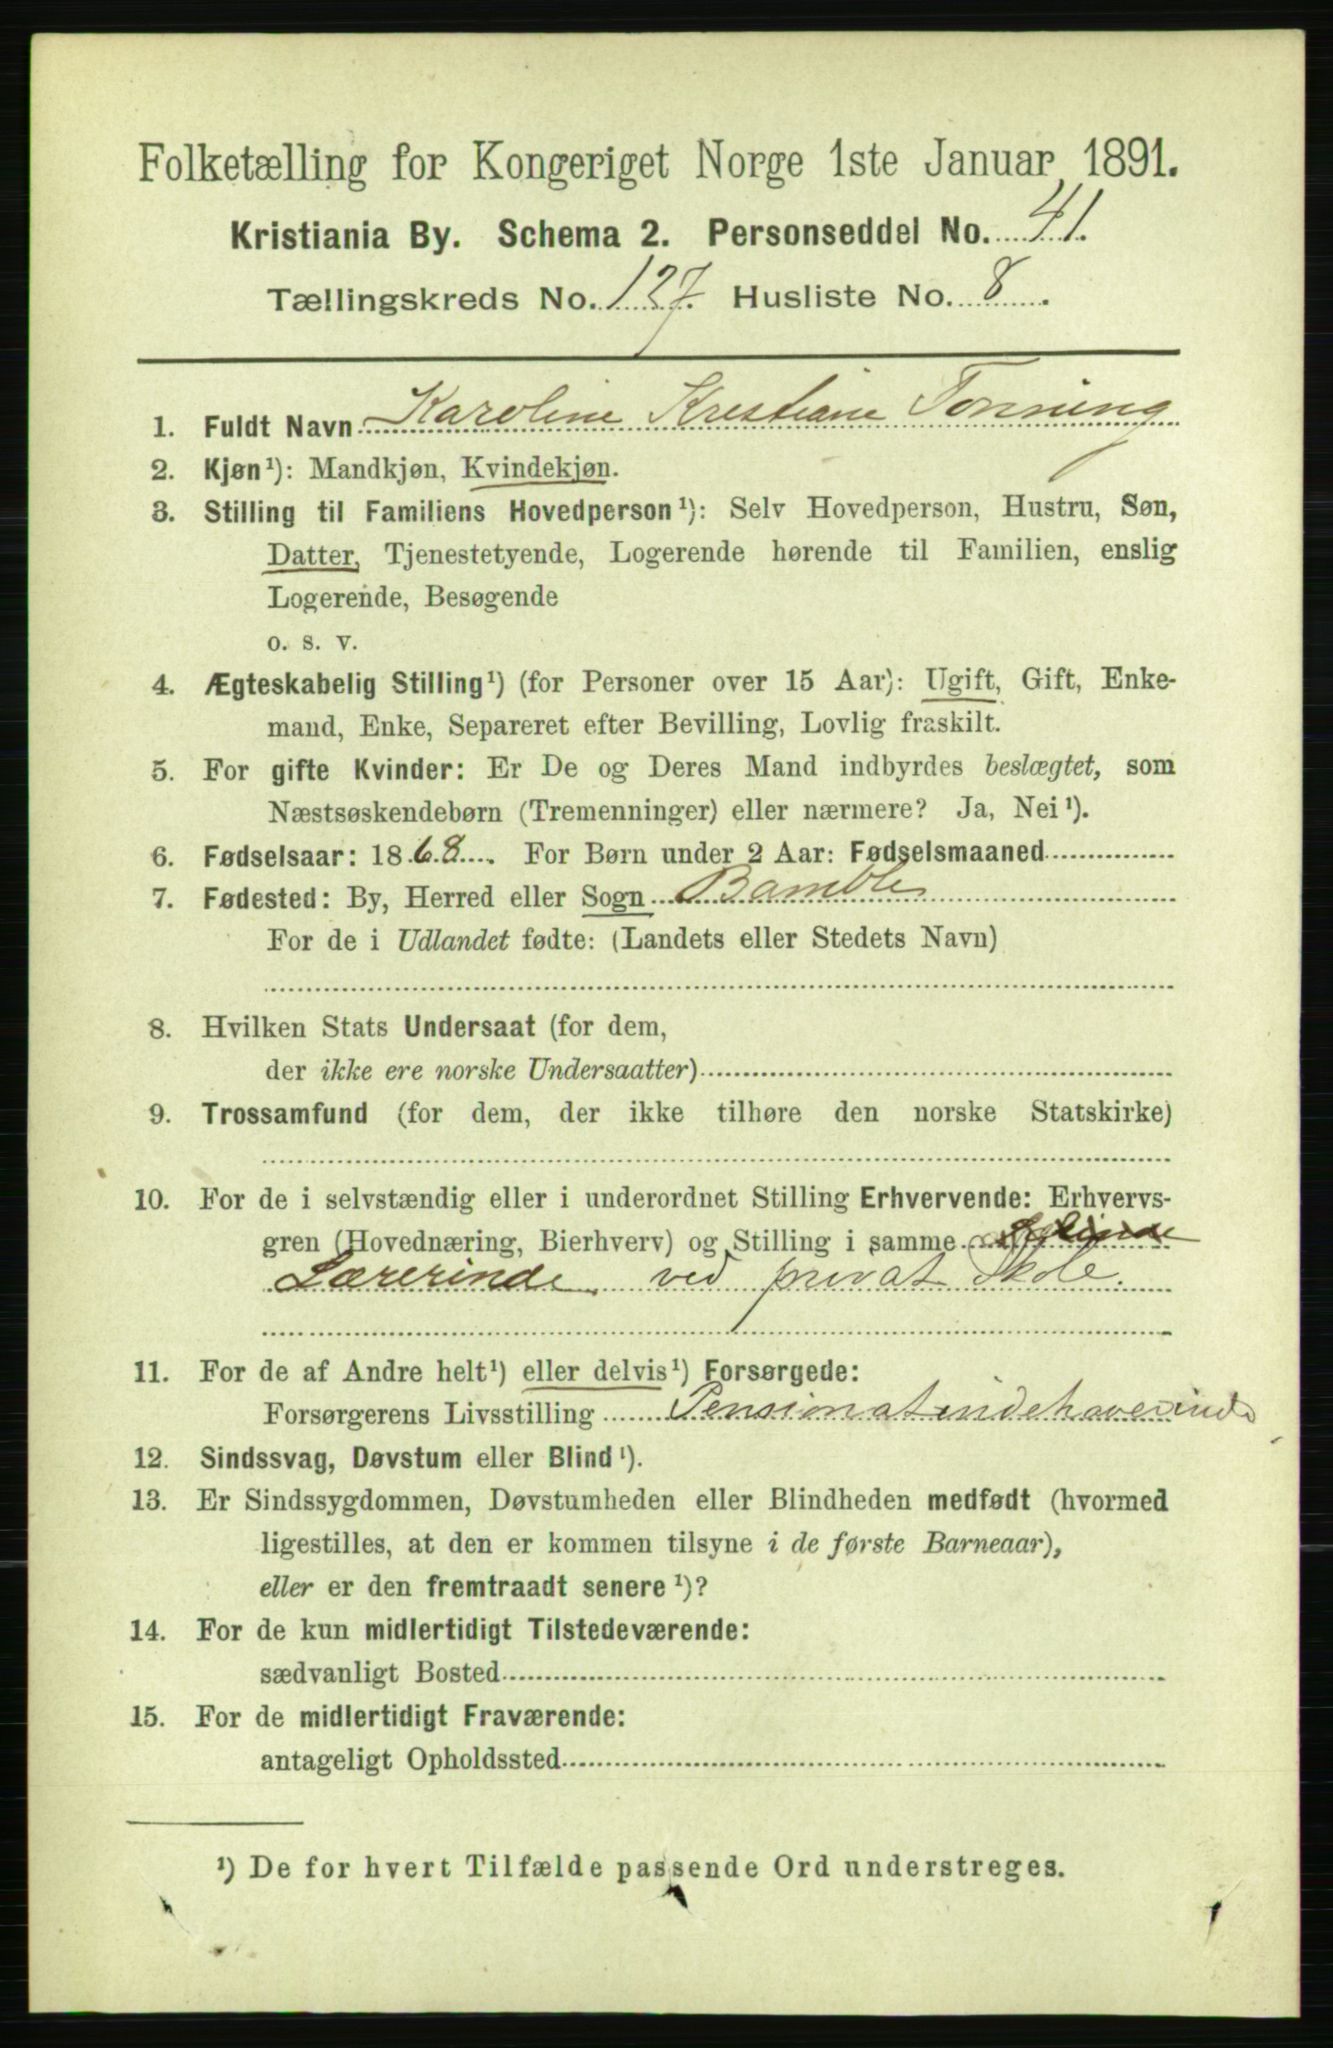 Folketælling for Kongeriget Norge 1ste Januar 1891.
Kristiania By. Schema 2. Personseddel No. 41.
Tællingskreds No. 127. Husliste No. 8.
1. Fuldt Navn Karoline Kristiane Tonning
2. Kjøn¹): Mandkjøn, Kvindekjøn.
3. Stilling til Familiens Hovedperson¹): Selv Hovedperson, Hustru, Søn,
Datter, Tjenestetyende, Logerende hørende til Familien, enslig
Logerende, Besøgende
o. s. v.
4. Ægteskabelig Stilling¹) (for Personer over 15 Aar): Ugift, Gift, Enke-
mand, Enke, Separeret efter Bevilling, Lovlig fraskilt.
5. For gifte Kvinder: Er De og Deres Mand indbyrdes beslægtet, som
Næstsøskendebørn (Tremenninger) eller nærmere? Ja, Nei¹).
6. Fødselsaar: 1868. For Børn under 2 Aar: Fødselsmaaned
7. Fødested: By, Herred eller Sogn Bamble
For de i Udlandet fødte: (Landets eller Stedets Navn)
8. Hvilken Stats Undersaat (for dem,
der ikke ere norske Undersaatter)
9. Trossamfund (for dem, der ikke tilhøre den norske Statskirke)
10. For de i selvstændig eller i underordnet Stilling Erhvervende: Erhvervs-
gren (Hovednæring, Bierhverv) og Stilling i samme
Lærerinde ved privat Skole.
11. For de af Andre helt¹) eller delvis¹) Forsørgede:
Forsørgerens Livsstilling Pensionatindehaverinde
12. Sindssvag, Døvstum eller Blind¹).
13. Er Sindssygdommen, Døvstumheden eller Blindheden medfødt (hvormed
ligestilles, at den er kommen tilsyne i de første Barneaar),
eller er den fremtraadt senere¹)?
14. For de kun midlertidigt Tilstedeværende:
sædvanligt Bosted
15. For de midlertidigt Fraværende:
antageligt Opholdssted
¹) De for hvert Tilfælde passende Ord understreges.